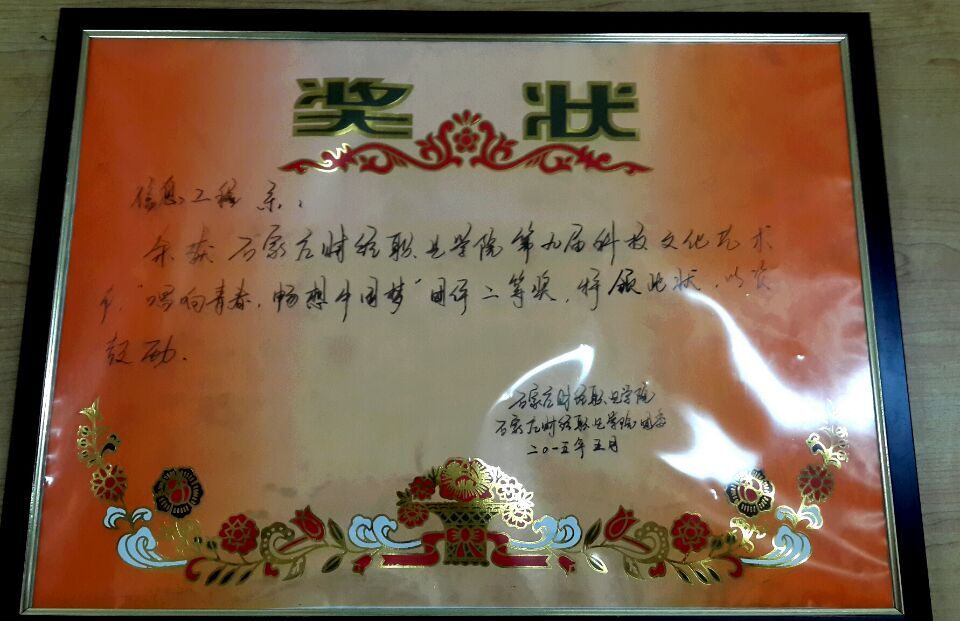 奖状
信息工程系:
荣获石家庄财经职业学院第九届科技文化艺术
节"唱响青春,畅想中国梦"团体二等奖,特颁此状,以资
鼓励.
石家庄财经职业学院
石家庄财经职业学院团委
二〇一五年五月